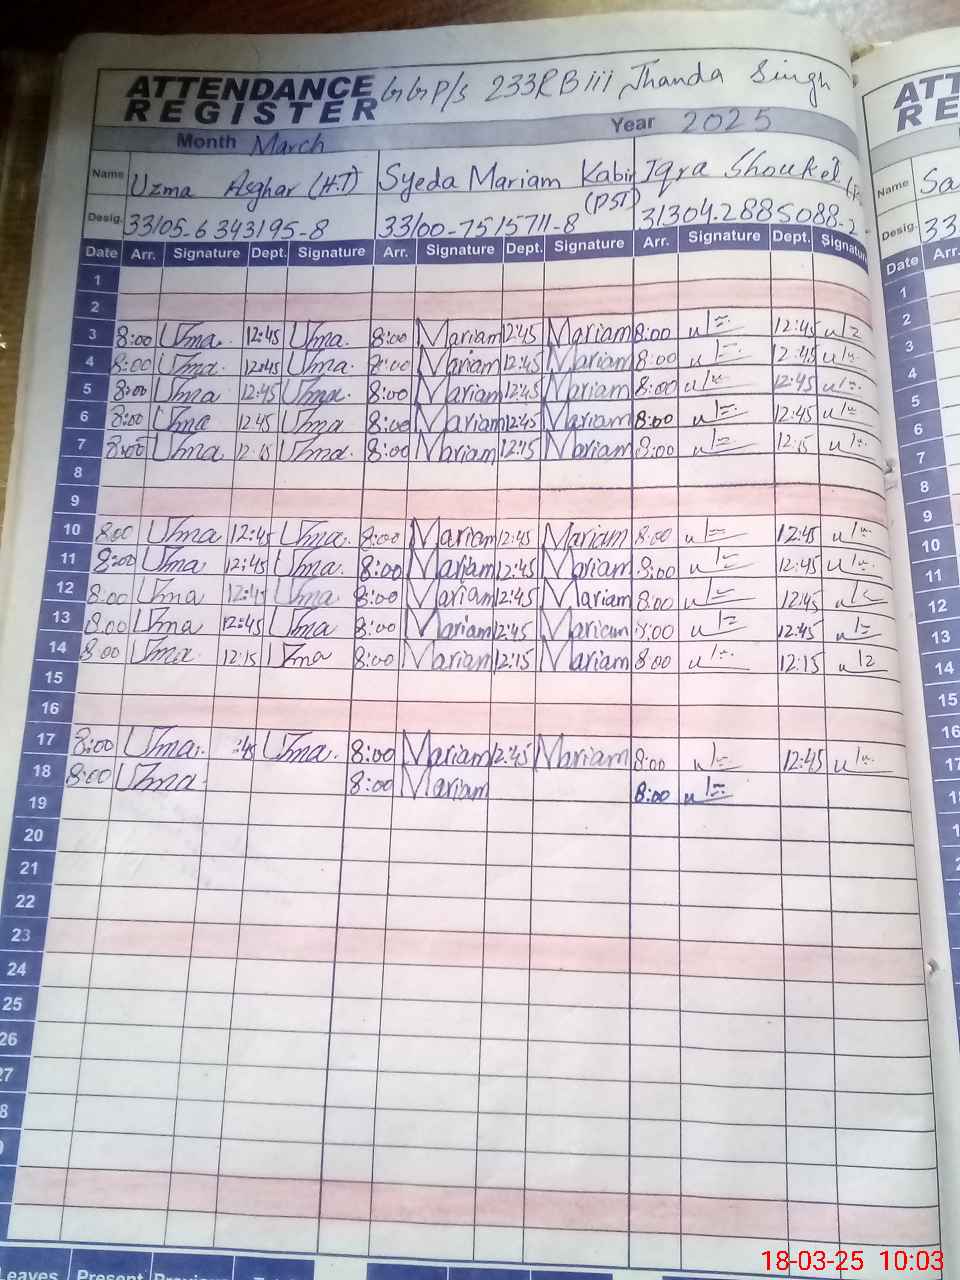 ATTENDANCE REGISTER GGP/s 233RB iii Jhanda Singh
Month March Year 2025
Name Uzma Asghar (H.T) Syeda Mariam Kabir (PST) Iqra Shouket
Desig. 33105-6343195-8 33100-7515711-8 31304-2885088-2
Date Arr. Signature Dept. Signature Arr. Signature Dept. Signature Arr. Signature Dept. Signature
1
2
3 8:00 Uzma 12:45 Uzma 8:00 Mariam 12:45 Mariam 8:00 12:45
4 8:00 Uzma 12:45 Uzma 8:00 Mariam 12:45 Mariam 8:00 12:45
5 8:00 Uzma 12:45 Uzma 8:00 Mariam 12:45 Mariam 8:00 12:45
6 8:00 Uzma 12:45 Uzma 8:00 Mariam 12:45 Mariam 8:00 12:45
7 8:00 Uzma 12:15 Uzma 8:00 Mariam 12:15 Mariam 8:00 12:15
8
9
10 8:00 Uzma 12:45 Uzma 8:00 Mariam 12:45 Mariam 8:00 12:45
11 8:00 Uzma 12:45 Uzma 8:00 Mariam 12:45 Mariam 8:00 12:45
12 8:00 Uzma 12:45 Uzma 8:00 Mariam 12:45 Mariam 8:00 12:45
13 8:00 Uzma 12:45 Uzma 8:00 Mariam 12:45 Mariam 8:00 12:45
14 8:00 Uzma 12:15 Uzma 8:00 Mariam 12:15 Mariam 8:00 12:15
15
16
17 8:00 Uzma :45 Uzma 8:00 Mariam 12:45 Mariam 8:00 12:45
18 8:00 Uzma 8:00 Mariam 8:00
19
20
21
22
23
24
25
26
27
8
Leaves Present
18-03-25 10:03